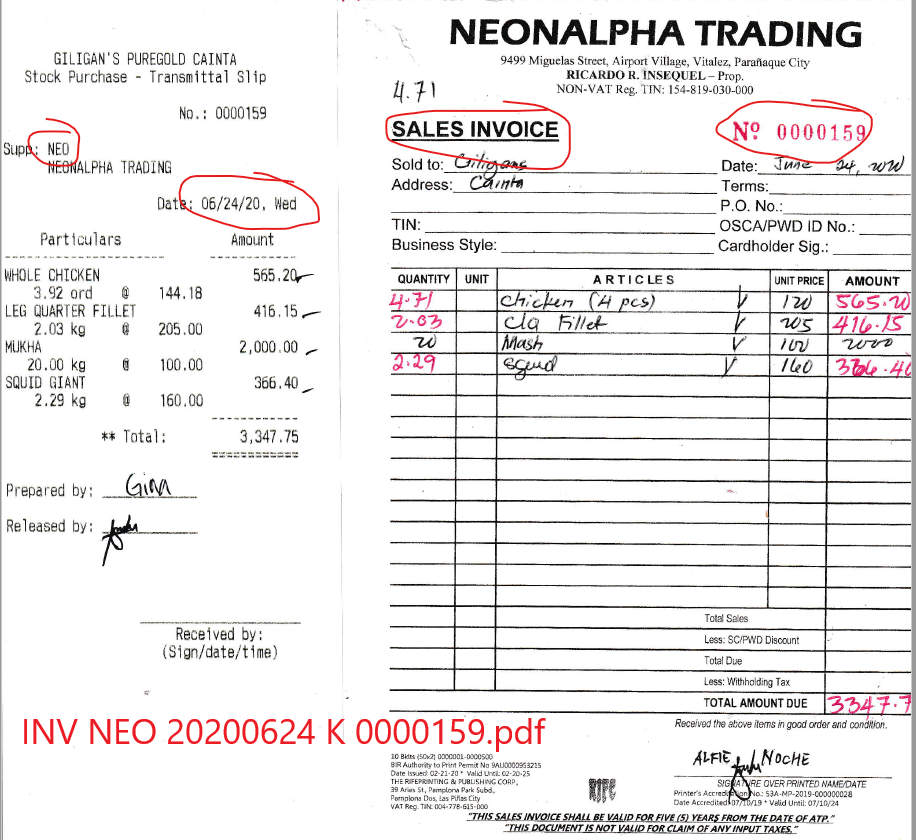 GILIGAN'S PUREGOLD CAINTA
Stock Purchase - Transmittal Slip
No.: 0000159
Supp: NEO
NEONALPHA TRADING
Date: 06/24/20, Wed
Particulars Amount
WHOLE CHICKEN 565.20
3.92 ord @ 144.18
LEG QUARTER FILLET 416.15
2.03 kg @ 205.00
MUKHA 2,000.00
20.00 kg @ 100.00
SQUID GIANT 366.40
2.29 kg @ 160.00
** Total: 3,347.75
Prepared by: Gina
Released by:
Received by:
(Sign/date/time)
NEONALPHA TRADING
9499 Miguelas Street, Airport Village, Vitalez, Parañaque City
RICARDO R. INSEQUEL – Prop.
NON-VAT Reg. TIN: 154-819-030-000
4.71
SALES INVOICE
Nº 0000159
Sold to: Giligans Date: June 24, 2020
Address: Cainta Terms:
P.O. No.:
TIN: OSCA/PWD ID No.:
Business Style: Cardholder Sig.:
QUANTITY UNIT ARTICLES UNIT PRICE AMOUNT
4.71 Chicken (4 pcs) 120 565.20
2.03 Clq Fillet 205 416.15
20 Mask 100 2000
2.29 squid 160 366.40
Total Sales
Less: SC/PWD Discount
Total Due
Less: Withholding Tax
TOTAL AMOUNT DUE 3347.7
Received the above items in good order and condition.
ALFIE NOCHE
SIGNATURE OVER PRINTED NAME/DATE
10 Bklts (50x2) 0000001-0000500
BIR Authority to Print Permit No 9AU0000953215
Date Issued: 02-21-20 * Valid Until: 02-20-25
THE RIFEPRINTING & PUBLISHING CORP.,
39 Aries St., Pamplona Park Subd.,
Pamplona Dos, Las Piñas City
VAT Reg. TIN: 004-778-615-000
RIFE
Printer's Accreditation No.: 53A-MP-2019-000000028
Date Accredited 07/10/19 * Valid Until: 07/10/24
"THIS SALES INVOICE SHALL BE VALID FOR FIVE (5) YEARS FROM THE DATE OF ATP."
"THIS DOCUMENT IS NOT VALID FOR CLAIM OF ANY INPUT TAXES."
INV NEO 20200624 K 0000159.pdf